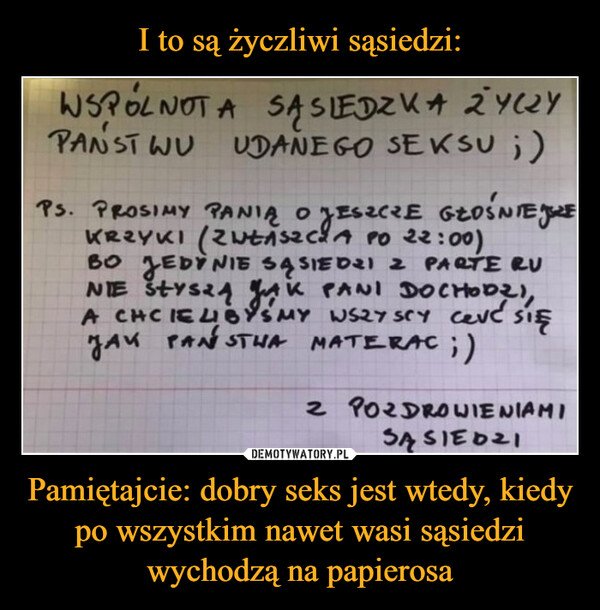 I to są życzliwi sąsiedzi:
WSPÓLNOTA SĄSIEDZKA ŻYCZY
PAŃSTWU UDANEGO SEKSU ;)
PS. PROSIMY PANIĄ O JESZCZE GŁOŚNIEJSZE
KRZYKI (ZWŁASZCZA PO 22:00)
BO JEDYNIE SĄSIEDZI Z PARTERU
NIE SŁYSZĄ JAK PANI DOCHODZI,
A CHCIELIBYŚMY WSZYSCY CZUĆ SIĘ
JAK PAŃSTWA MATERAC ;)
Z POZDROWIENIAMI
SĄSIEDZI
DEMOTYWATORY.PL
Pamiętajcie: dobry seks jest wtedy, kiedy
po wszystkim nawet wasi sąsiedzi
wychodzą na papierosa